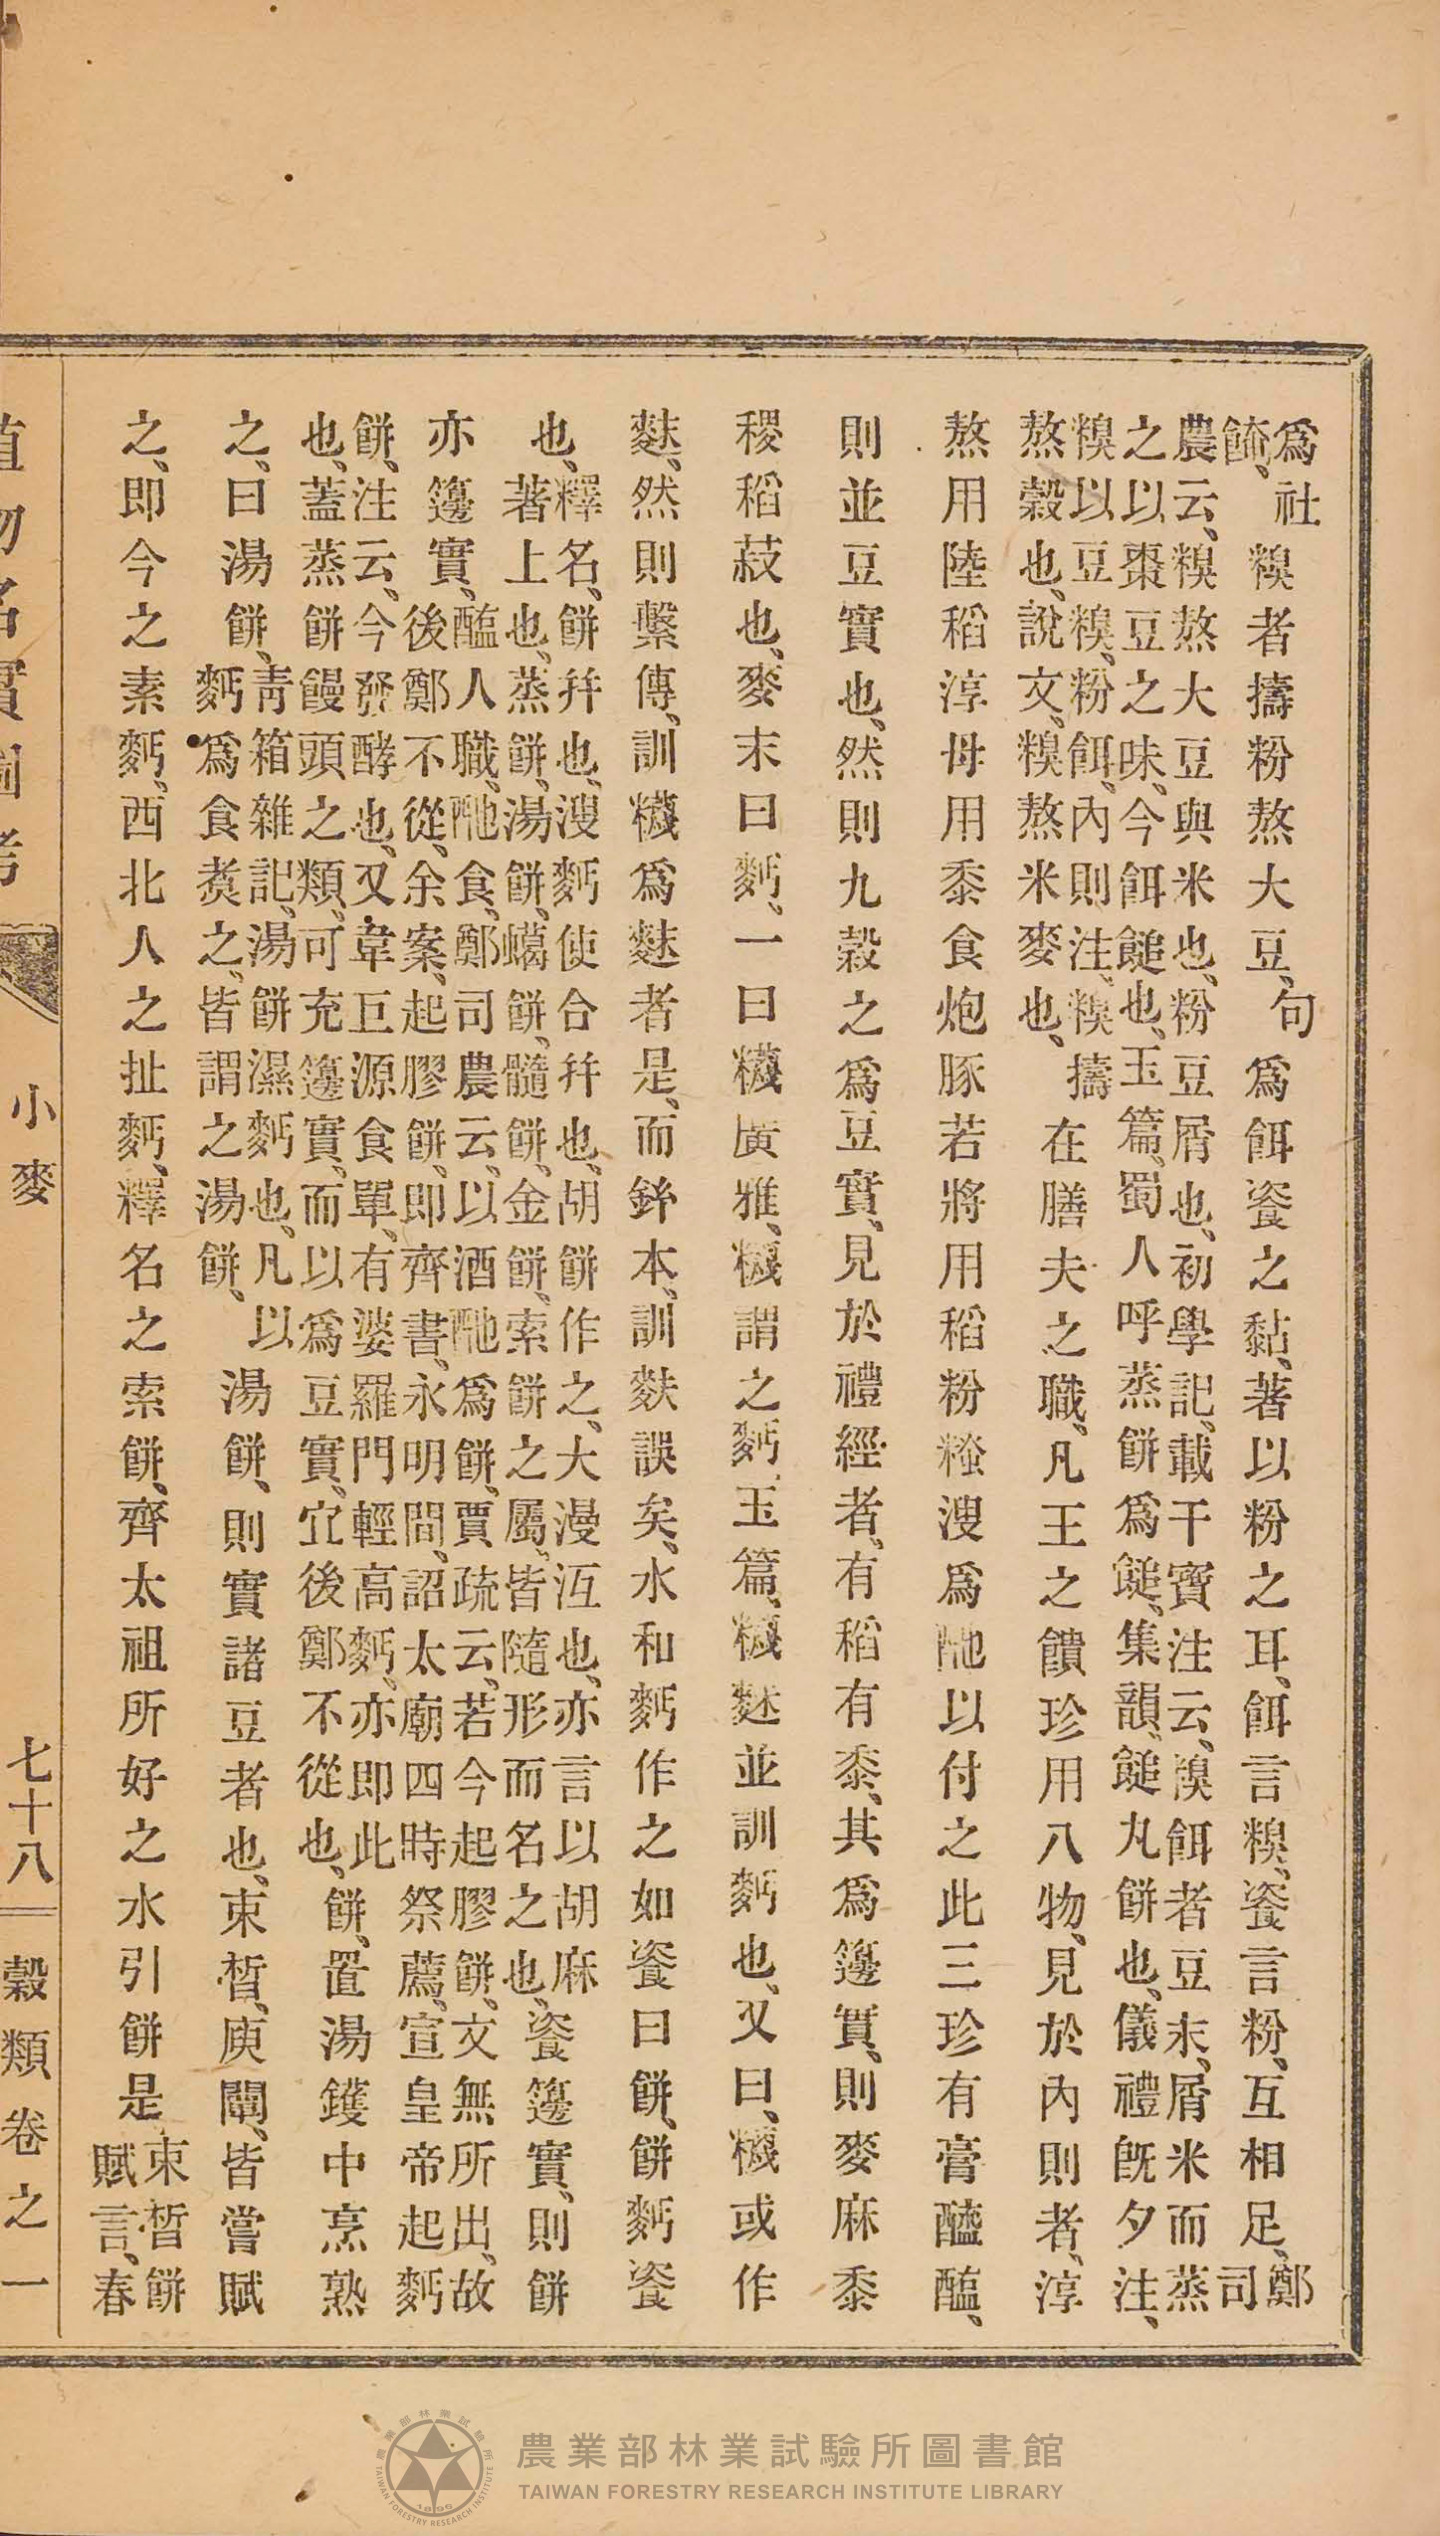 為社糗者擣粉熬大豆、句為餌餈之黏、著以粉之耳、餌言糗、餈言粉、互相足、鄭司
農云、糗熬大豆與米也、粉豆屑也、初學記、載干寶注云、糗餌者豆末、屑米而蒸
之以棗豆之味、今餌䭔也、玉篇、蜀人呼蒸餅為䭔、集韻、䭔丸餅也、儀禮旣夕注、
糗以豆糗、粉餌、內則注、糗擣
熬穀也、說文、糗熬米麥也、
在膳夫之職、凡王之饋珍用八物、見於內則者、淳
熬用陸稻淳母用黍食炮豚若將用稻粉糔溲為酏以付之此三珍有膏醯醢、
則並豆實也、然則九穀之為豆實、見於禮經者、有稻有黍、其為籩實、則麥麻黍
稷稻菽也、麥末曰麪、一曰䊳廣雅、䊳謂之麪、玉篇、䊳䴲並訓麪也、又曰、䊳或作
䴲、然則繫傳、訓䊳為䴲者是、而鉉本、訓麩誤矣、水和麪作之如餈曰餅、餅麪餈
也、釋名、餅并也、溲麪使合并也、胡餅作之、大漫沍也、亦言以胡麻
著上也、蒸餅、湯餅、蠍餅、髓餅、金餅、索餅之屬、皆隨形而名之也、
餈籩實、則餅
亦籩實、醢人職、酏食、鄭司農云、以酒酏為餅、賈疏云、若今起膠餅、文無所出、故
後鄭不從、余案、起膠餅、即齊書、永明間、詔太廟四時祭薦、宣皇帝起麪
餅、注云、今發酵也、又韋巨源食單、有婆羅門輕高麪、亦即此
也、蓋蒸餅饅頭之類、可充籩實、而以為豆實、宜後鄭不從也、
餅、置湯鑊中烹熟
之、曰湯餅、青箱雜記、湯餅濕麪也、凡以
麪為食煑之、皆謂之湯餅、
湯餅、則實諸豆者也、束皙、庾闡、皆嘗賦
之、即今之素麪、西北人之扯麪、釋名之索餅、齊太祖所好之水引餅是、束皙餅
賦言、春
植物名實圖考
小麥
七十八
穀類卷之一
農業部林業試驗所圖書館
TAIWAN FORESTRY RESEARCH INSTITUTE LIBRARY